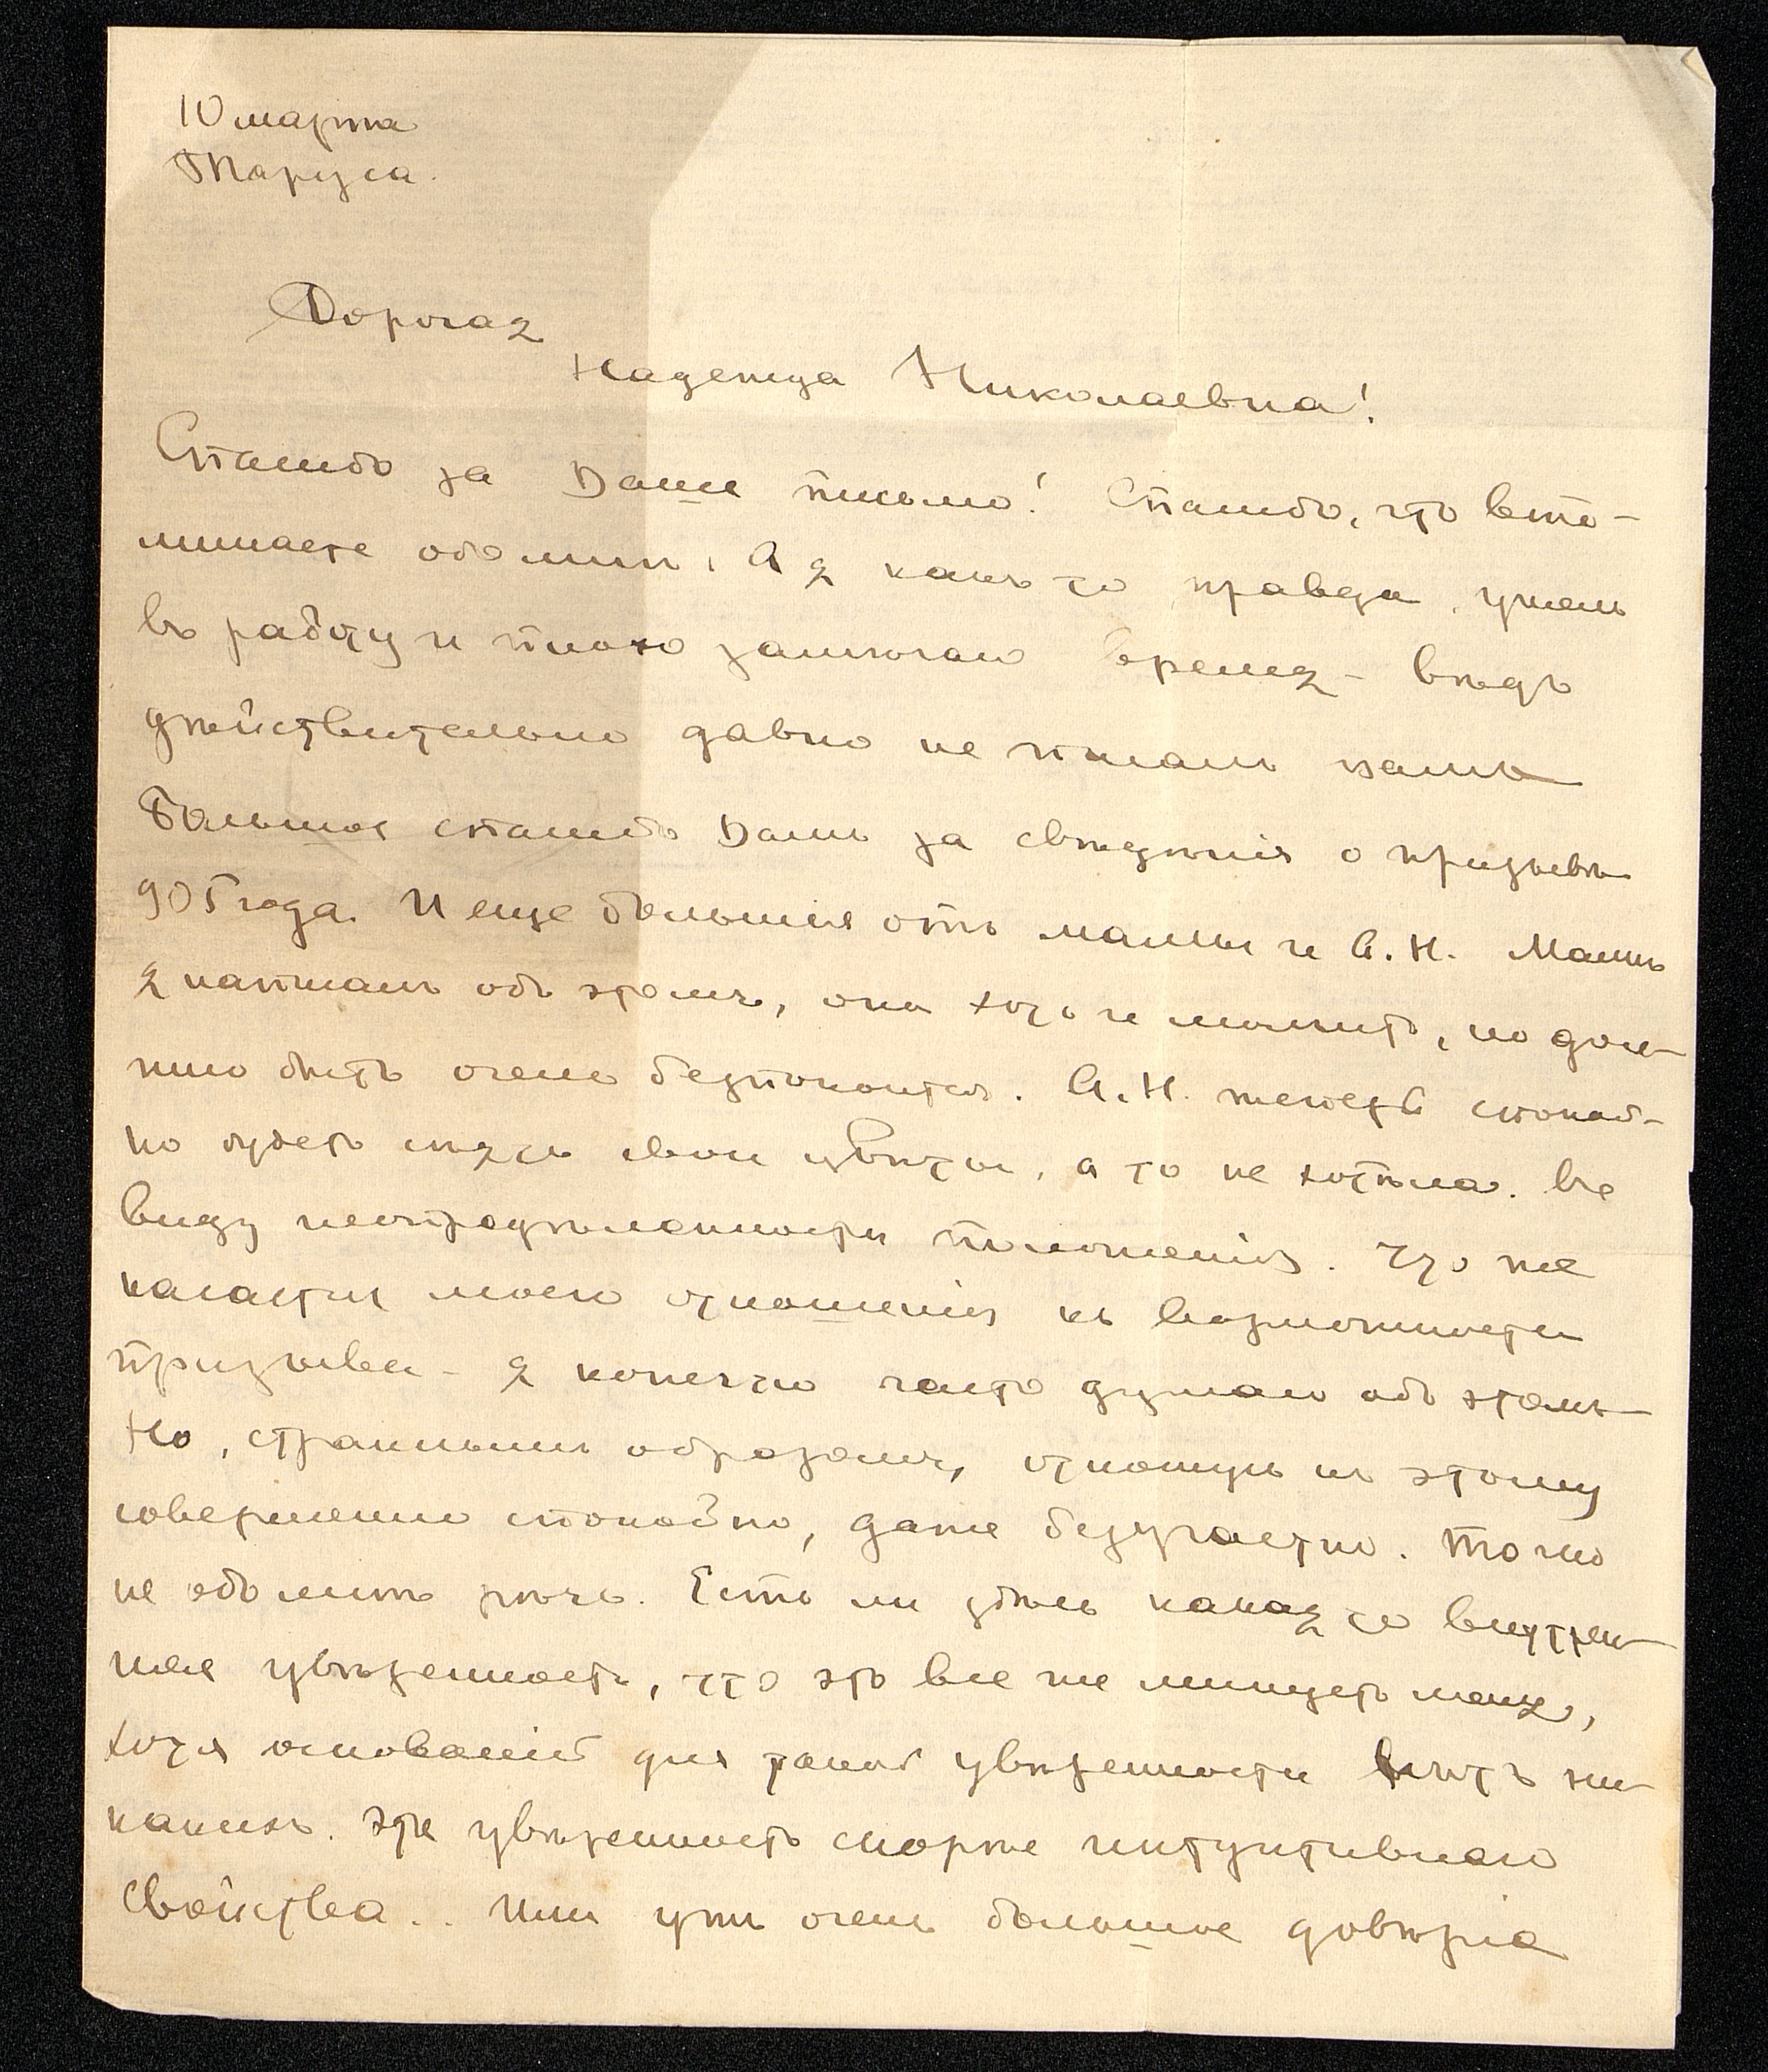 10 марта
Таруса.
Дорогая
Надежда Николаевна!
Спасибо за Ваше письмо! Спасибо, что вспо-
минаете обо мнѣ. А я какъ то, правда, ушелъ
въ работу и плохо замѣчаю время – вѣдь
дѣйствительно давно не писалъ Вамъ
Большое спасибо Вамъ за свѣдѣнія о призывѣ
905 года. И еще большее отъ мамы и А. Н. Мамѣ
я написалъ объ этомъ, она хоть и молчитъ, но долж-
но быть очень безпокоится. А. Н. теперь спокой-
но будетъ сѣять свои цвѣты, а то не хотѣла. Въ
виду неопредѣленности положенія. Что же
касается моего отношенія къ возможности
призыва – я конечно часто думаю объ этомъ
Но, страннымъ образомъ, отношусь къ этому
совершенно спокойно, даже безучастно. Точно
не обо мнѣ рѣчь. Есть ли здѣсь какая то внутрен-
няя увѣренность, что это все же минуетъ меня,
хотя основаній для такой увѣренности нѣтъ ни-
какихъ. Эта увѣренность скорѣе интуитивнаго
свойства.. Или ужъ очень большое довѣріе